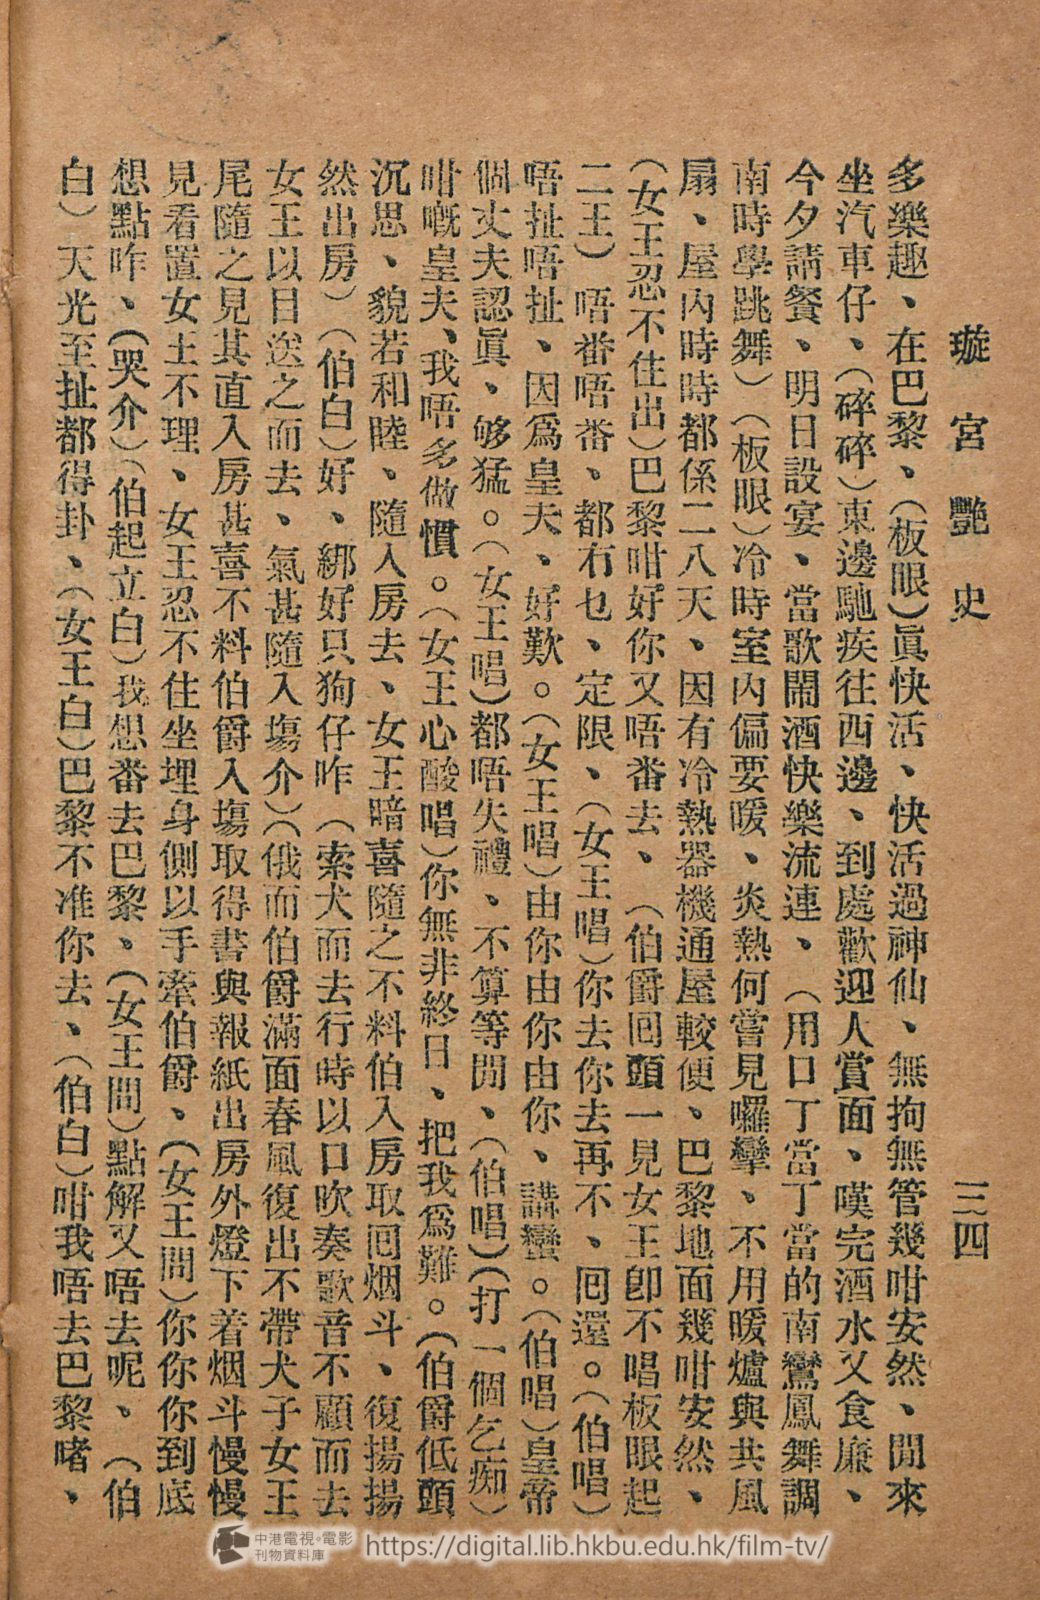 璇宮艷史 三四
多樂趣、在巴黎、(板眼)眞快活、快活過神仙、無拘無管幾咁安然、閒來
坐汽車仔、(碎碎)東邊馳疾往西邊、到處歡迎人賞面、嘆完酒水又食廉、
今夕請餐、明日設宴、當歌鬧酒快樂流連、(用口丁當丁當的南鸞鳳舞調
南時學跳舞)(板眼)冷時室內偏要暖、炎熱何嘗見囉攣、不用暖爐與共風
扇、屋內時時都係二八天、因有冷熱器機通屋較便、巴黎地面幾咁安然、
(女王忍不住出)巴黎咁好你又唔番去、(伯爵囘頭一見女王卽不唱板眼起
二王)唔番唔番、都冇乜、定限、(女王唱)你去你去再不、囘還。(伯唱)
唔扯唔扯、因爲皇夫、好歎。(女王唱)由你由你由你、講蠻。(伯唱)皇帝
個丈夫認眞、够猛。(女王唱)都唔失禮、不算等閒、(伯唱)(打一個乞痴)
咁嘅皇夫、我唔多做慣。(女王心酸唱)你無非終日、把我爲難。(伯爵低頭
沉思、貌若和睦、隨入房去、女王暗喜隨之不料伯入房取囘烟斗、復揚揚
然出房)(伯白)好、綁好只狗仔咋(索犬而去行時以口吹奏歌音不顧而去
女王以目送之而去、氣甚隨入塲介)(俄而伯爵滿面春風復出不帶犬子女王
尾隨之見其直入房甚喜不料伯爵入塲取得書與報紙出房外燈下着烟斗慢慢
見看置女王不理、女王忍不住坐埋身側以手牽伯爵、(女王問)你你你到底
想點咋、(哭介)(伯起立白)我想番去巴黎、(女王問)點解又唔去呢、(伯
白)天光至扯都得卦、(女王白)巴黎不准你去、(伯白)咁我唔去巴黎啫、
中港電視。電影
刊物資料庫
https://digital.lib.hkbu.edu.hk/film-tv/